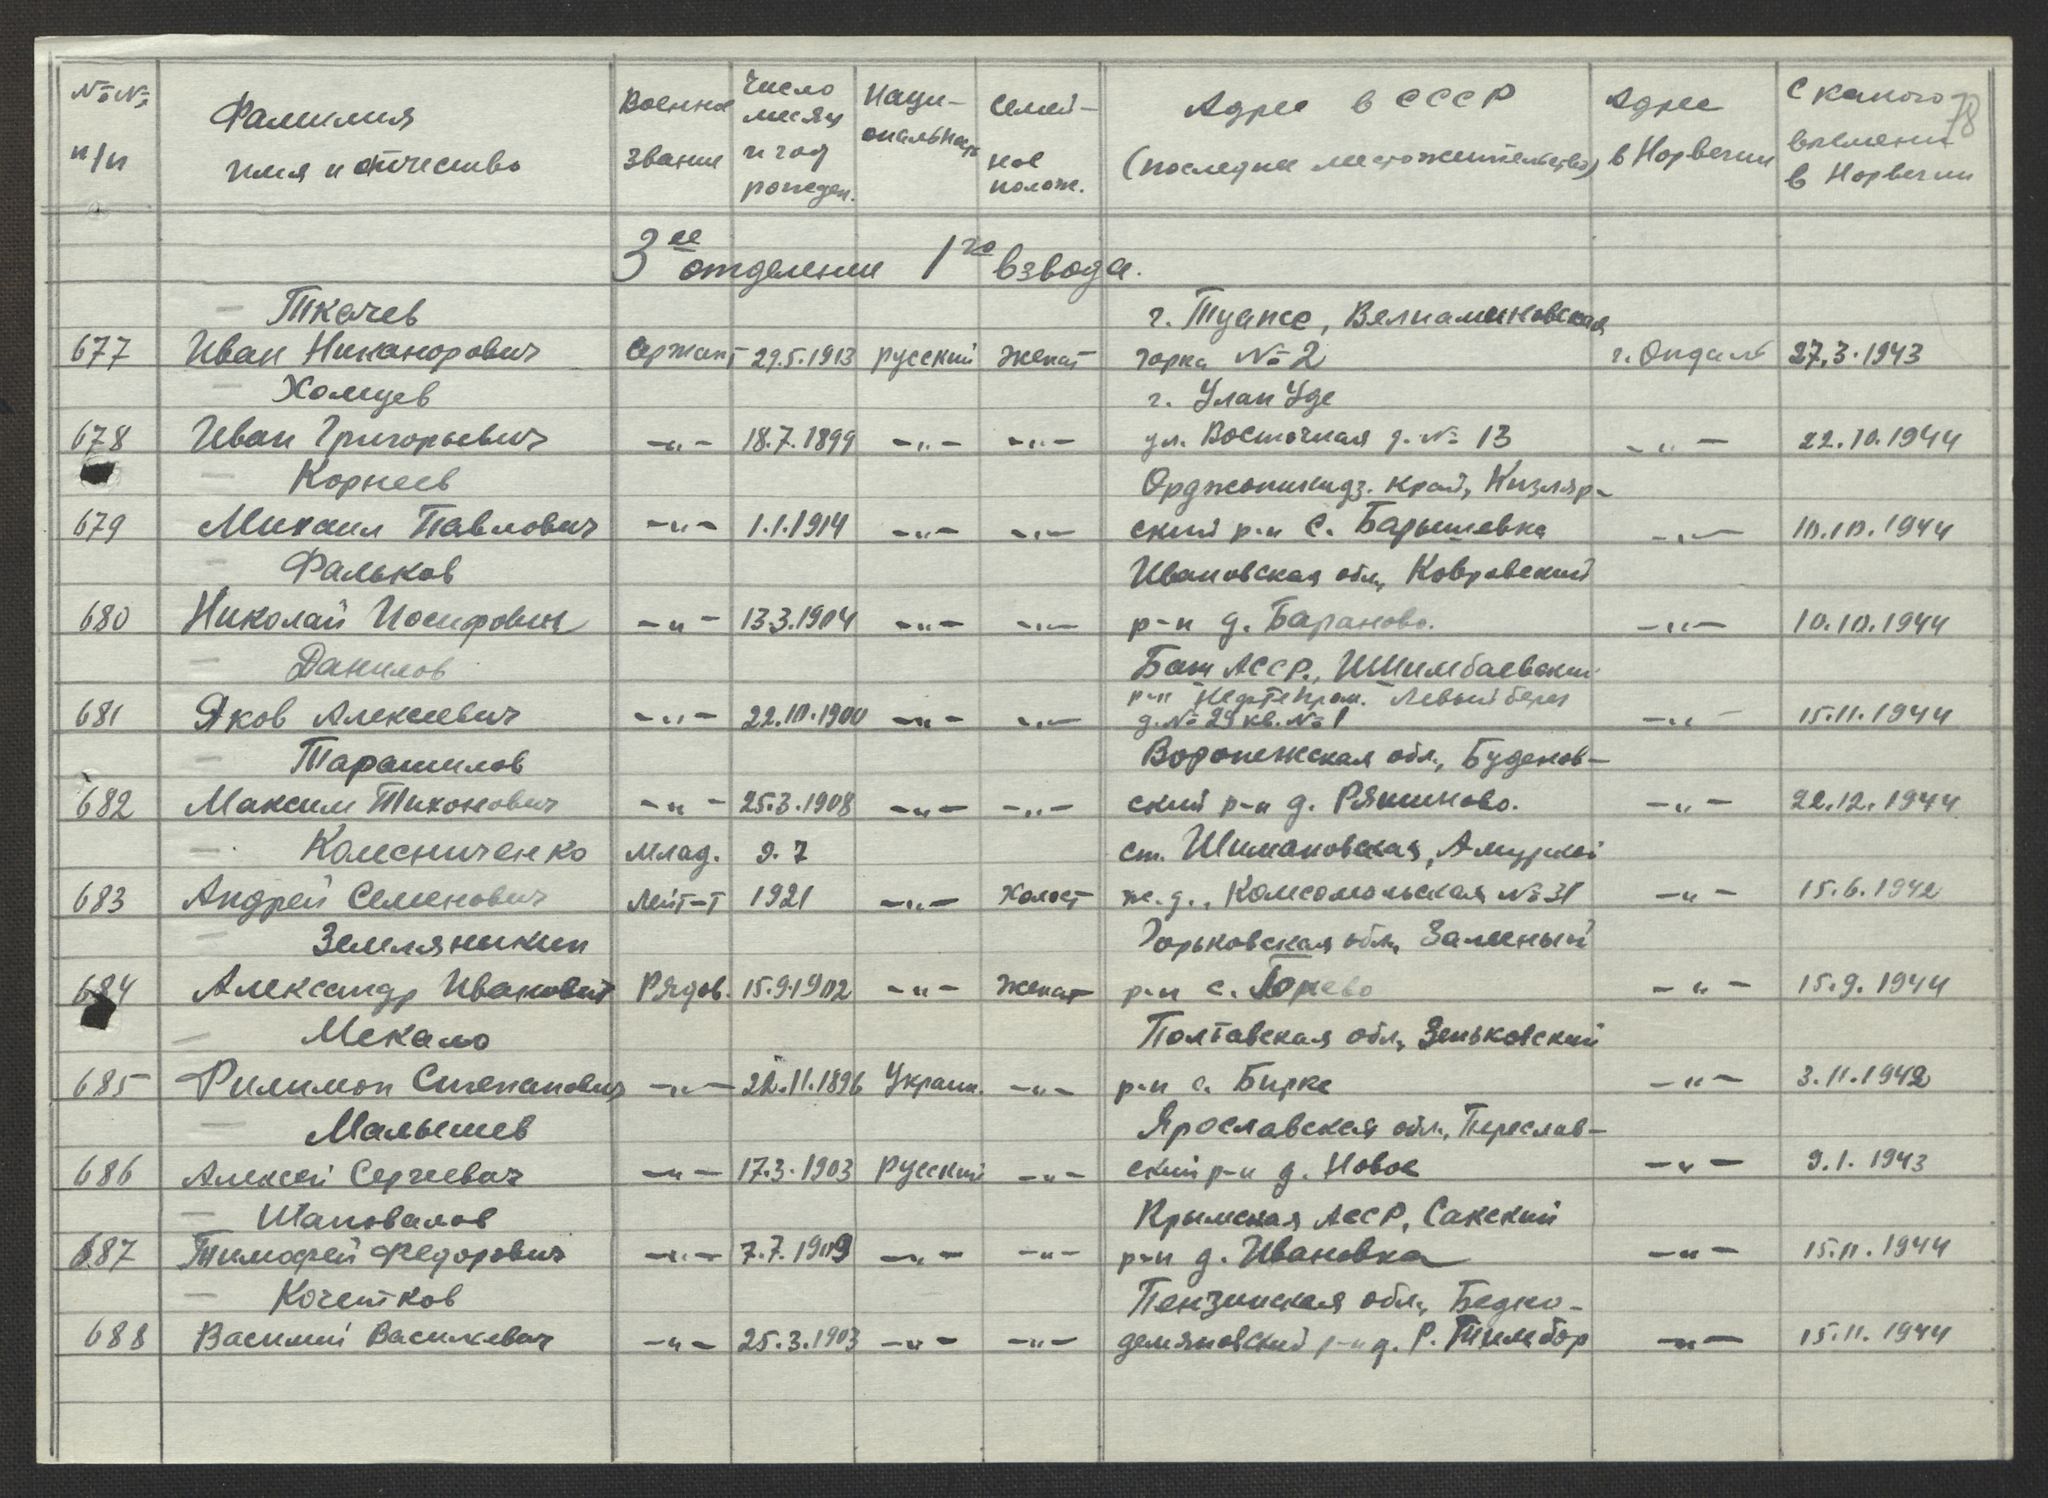 №№ п/п Фамилия имя и отчество Военное звание Число месяц и год рожден. Наци-ональность Семей-ное полож. Адрес в СССР (последнее местожительство) Адрес в Норвегии С какого времени в Норвегии
78
3ее отделение 1го взвода.
Ткачев г. Туапсе, Велиаминовская
677 Иван Никанорович Сержант 29.5.1913 русский женат горка №2 г. Опдаль 27.3.1943
Холщев г. Улан Уде
678 Иван Григорьевич —"— 18.7.1899 —"— —"— ул. Восточная д. № 13 —"— 22.10.1944
Корнеев Орджоникидз. край, Кизляр-
679 Михаил Павлович —"— 1.1.1914 —"— —"— ский р-н с. Барышевка —"— 10.10.1944
Фальков Ивановская обл, Ковровский
680 Николай Иосифович —"— 13.3.1904 —"— —"— р-н д. Бараново. —"— 10.10.1944
Данилов Баш АССР., Ишимбаевский
р-н "Нефтепром." Левый берег
681 Яков Алексеевич —"— 22.10.1900 —"— —"— д.№29 кв.№1 —"— 15.11.1944
Тарашилов Воронежская обл., Буденов-
682 Максим Тихонович —"— 25.3.1908 —"— —"— ский р-н д. Ряпиново. —"— 22.12.1944
Колесниченко Млад. 9.7 ст. Шимановская, Амурской
683 Андрей Семенович Лейт-т 1921 —"— Холост ж.д., Комсомольская №31 —"— 15.6.1942
Земляникин Горьковская обл,
684 Александр Иванович Рядов. 15.9.1902 —"— женат р-н с. —"— 15.9.1944
Мекало Полтавская обл, Зеньковский
685 Филимон Степанович —"— 22.11.1896 Украин. —"— р-н с. Бирке —"— 3.11.1942
Малышев Ярославская обл., Переслав-
686 Алексей Сергеевич —"— 17.3.1903 Русский —"— ский р-н д. Новое —"— 9.1.1943
Шаповалов Крымская АССР, Сакский
687 Тимофей Федорович —"— 7.7.1909 —"— —"— р-н д. Ивановка —"— 15.11.1944
Кочетков Пензинская обл, Бедно-
688 Василий Васильевич —"— 25.3.1903 —"— —"— демяновский р-н д. Р. Тимбор —"— 15.11.1944